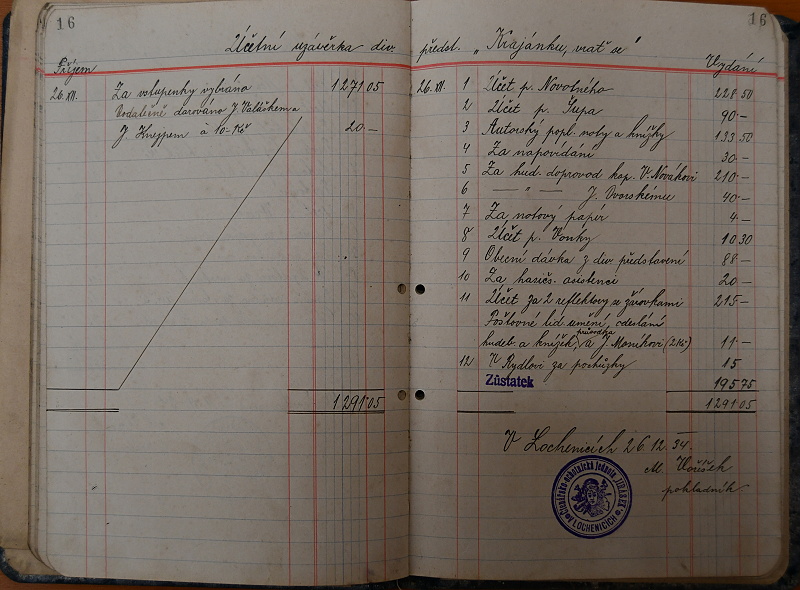 16
Účetní uzávěrka div.
Příjem
26.XII. Za vstupenky vybráno 1271 05
Dodatečně darováno J. Valáškem a
J. Knejpem à 10-Kč 20.—
1291 05
16
předst. „Krajánku, vrať se"
Vydání
26.XII. 1 Účet p. Novotného 228 50
2 Účet p. Supa 90 —
3 Autorský popl. noty a knížky 133 50
4 Za napovídání 30 —
5 Za hud. doprovod kap. V. Novákovi 210 —
6 — " — J. Dvorskému 40 —
7 Za notový papír 4 —
8 Účet p. Vonky 10 30
9 Obecní dávka z div. představení 88 —
10 Za hasičs. asistenci 20 —
11 Účet za 2 reflektory se žárovkami 215 —
Poštovné lid. umění, odeslání
hudeb. a knížek, a J. Moníkovi (2 Kč) 11 —
12 Rydlovi za pochůzky 15
Zůstatek 195 75
1291 05
V Lochenicích 26.12.34.
M. Voříšek
pokladník
LOCHENICÍCH